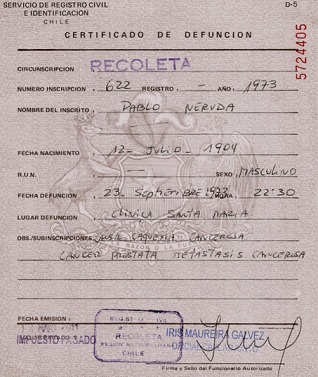 SERVICIO DE REGISTRO CIVIL
E IDENTIFICACION
CHILE
D-5
CERTIFICADO DE DEFUNCION
5724405
CIRCUNSCRIPCION RECOLETA
NUMERO INSCRIPCION 622 REGISTRO - AÑO: 1973
NOMBRE DEL INSCRITO: PABLO NERUDA
FECHA NACIMIENTO 12 - Julio - 1904
R.U.N. SEXO MASCULINO
FECHA DEFUNCION 23 Septiembre 1973 HORA 22:30
LUGAR DEFUNCION Clinica SANTA MARIA
OBS./SUBINSCRIPCIONES CAQUEXIA CANCEROSA
CANCER PROSTATA METASTASIS CANCEROSA
FECHA EMISION:
IMPUESTO PAGADO
RECOLETA
CHILE
IRIS MAUREIRA GALVEZ
Firma y Sello del Funcionario Autorizado